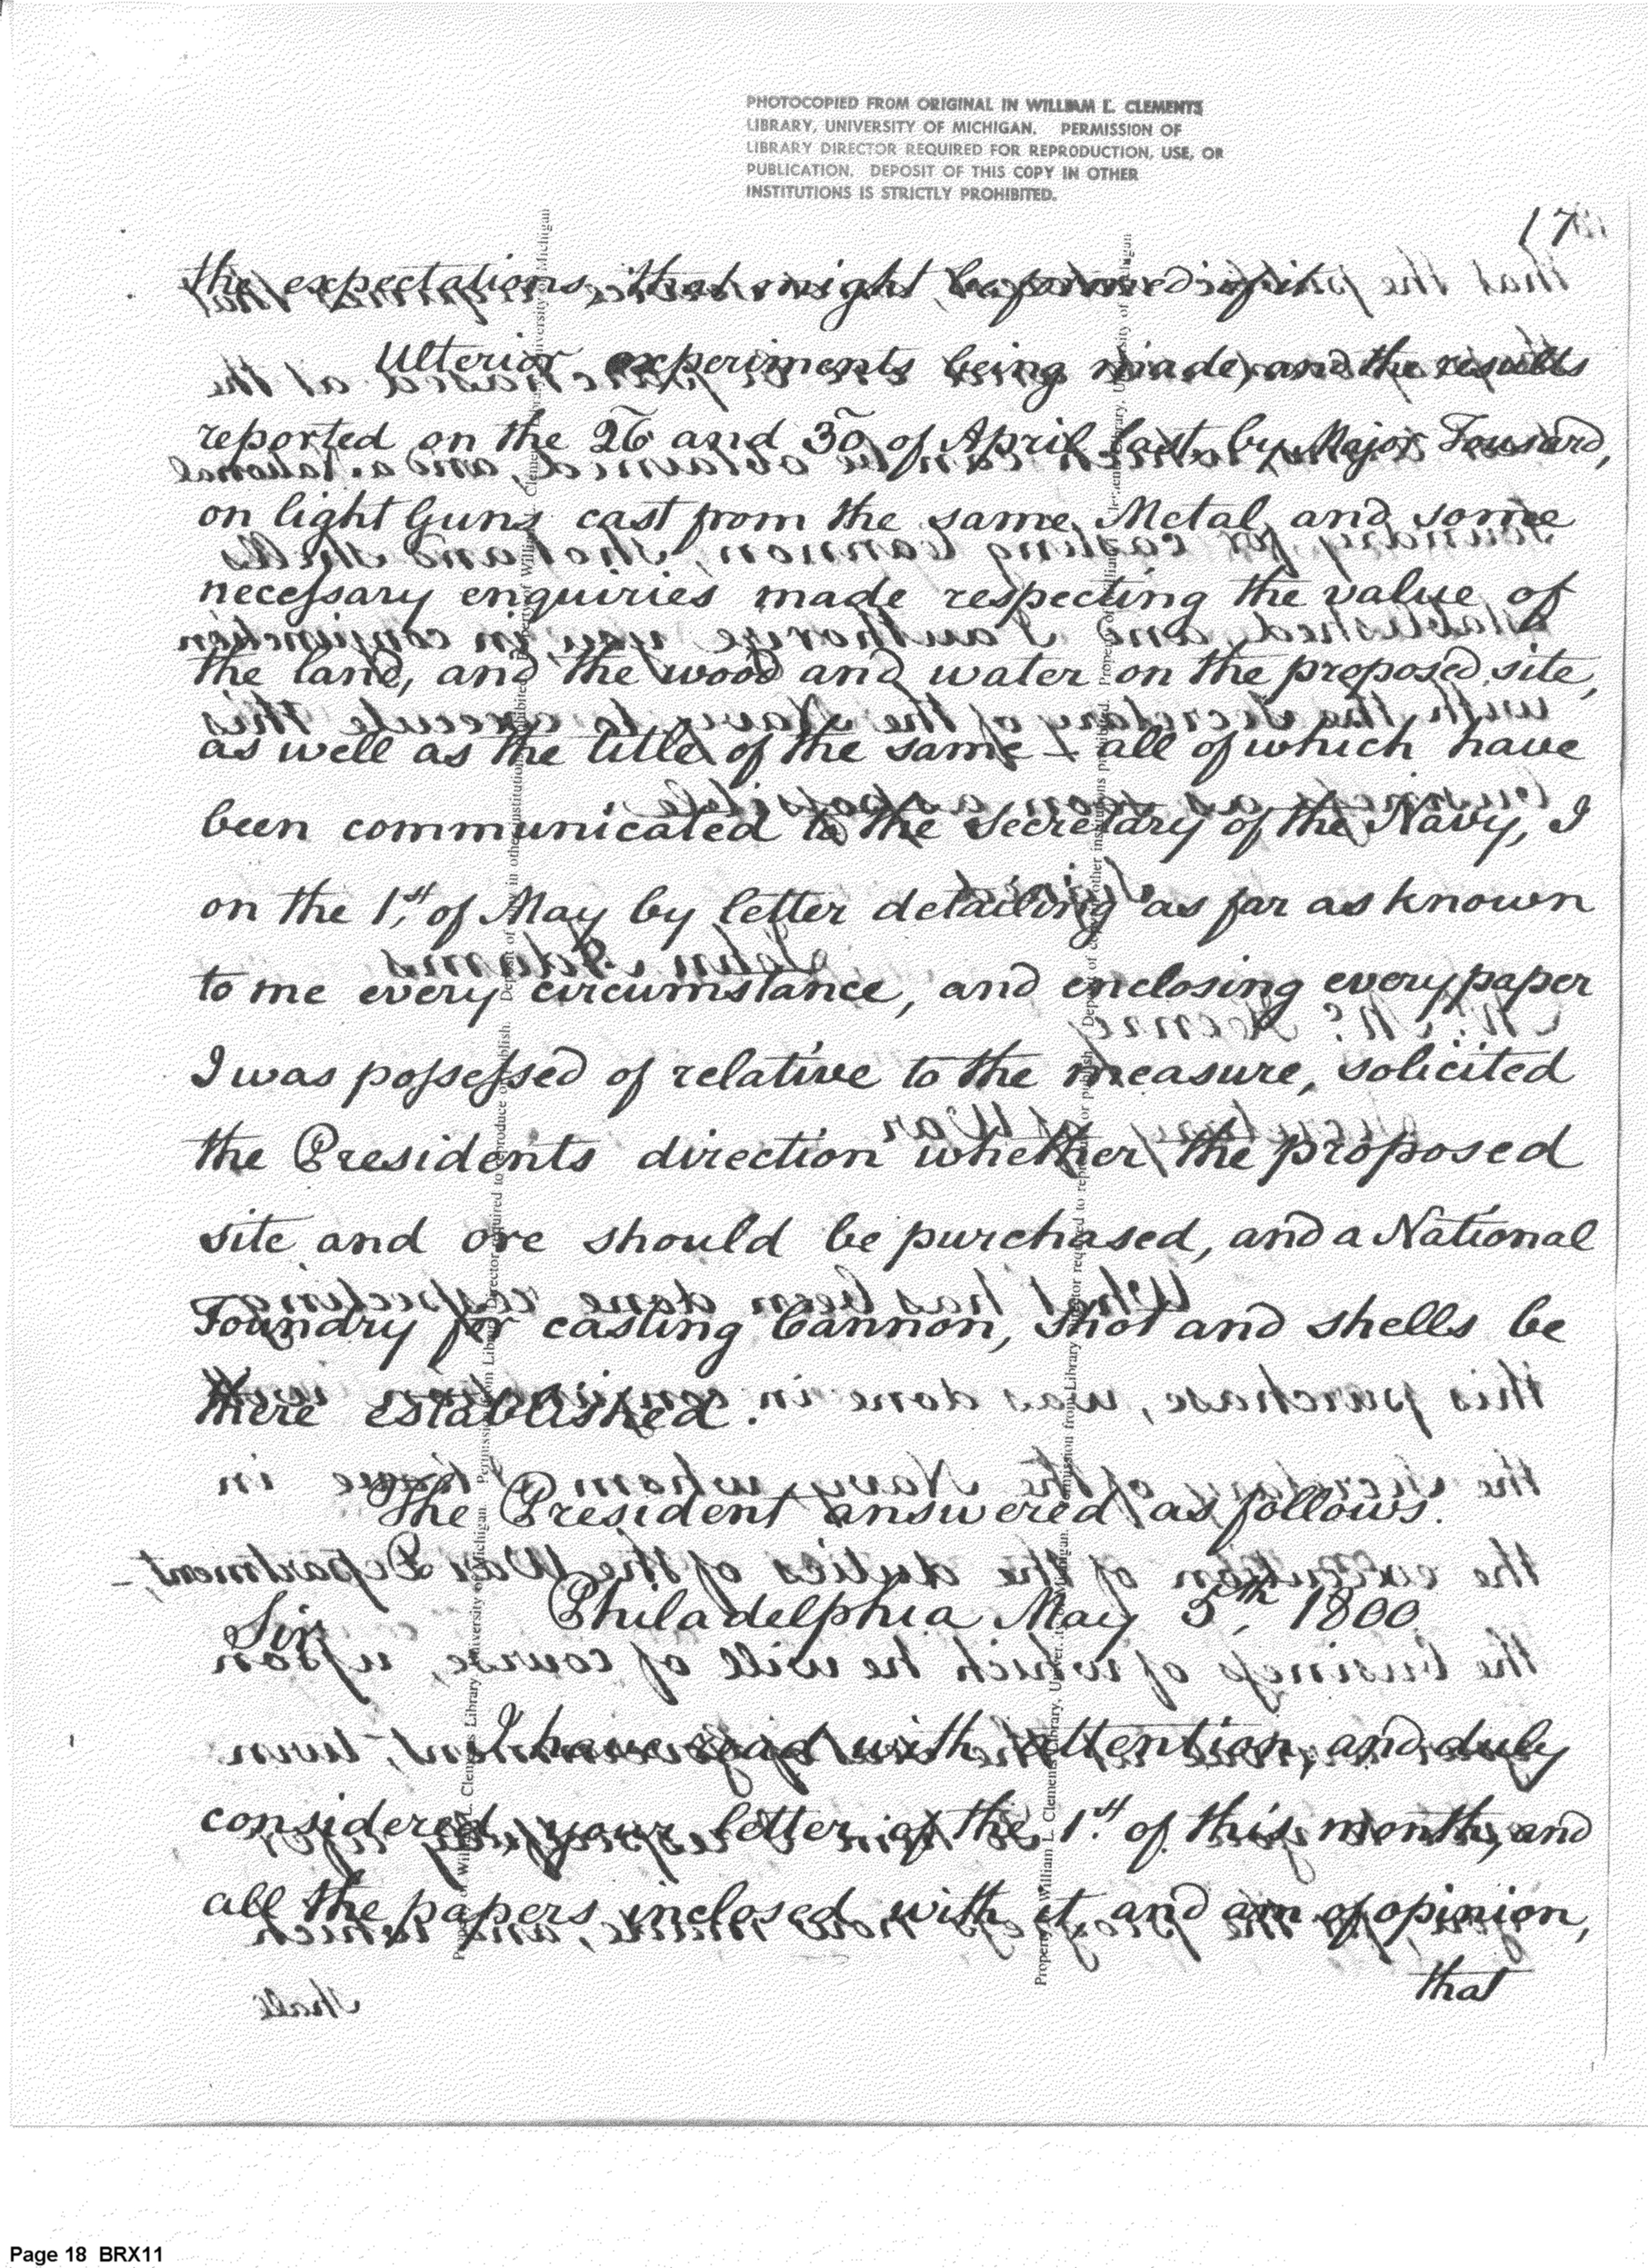 PHOTOCOPIED FROM ORIGINAL IN WILLIAM L. CLEMENTS
LIBRARY, UNIVERSITY OF MICHIGAN. PERMISSION OF
LIBRARY DIRECTOR REQUIRED FOR REPRODUCTION, USE, OR
PUBLICATION. DEPOSIT OF THIS COPY IN OTHER
INSTITUTIONS IS STRICTLY PROHIBITED.
17
the expectations, that might be formed of it
Ulterior experiments being made, and the results
reported on the 26 and 30 of April last, by Major Tousard,
on light Guns cast from the same Metal, and some
necessary enquiries made respecting the value of
the land, and the wood and water on the proposed site,
as well as the title of the same – all of which have
been communicated to the Secretary of the Navy, I
on the 1st of May by letter detailing as far as known
to me every circumstance, and enclosing every paper
I was possessed of relative to the measure, solicited
the Presidents direction whether the proposed
site and ore should be purchased, and a National
Foundry for casting Cannon, shot and shells be
there established.
The President answered as follows.
Philadelphia May 5th, 1800.
Sir
I have read with attention, and duly
considered, your letter of the 1st of this month, and
all the papers inclosed with it and am of opinion,
that
Page 18 BRX11